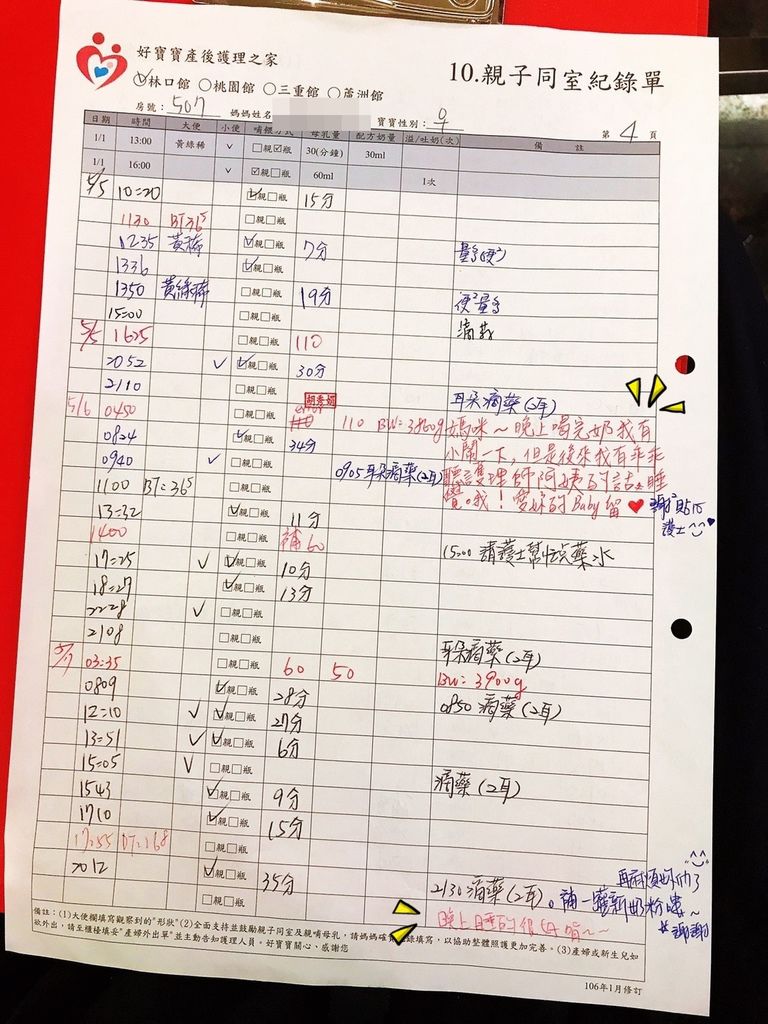 好寶寶產後護理之家
林口館 桃園館 三重館 蘆洲館
10.親子同室紀錄單
房號：507 媽媽姓名 寶寶性別：♀ 第 4 頁
日期 時間 大便 小便 哺餵方式 母乳量 配方奶量 溢/吐奶(次) 備 註
1/1 13:00 黃綠稀 ✓ □親☑瓶 30(分鐘) 30ml
1/1 16:00 ✓ ☑親□瓶 60ml 1次
5/5 10:20 ☑親□瓶 15分
1130 BT:36⁵ □親□瓶
1235 黃稀 ☑親□瓶 7分
1336 ☑親□瓶
1350 黃綠稀 □親□瓶 19分 便量多
15:00 □親□瓶 滴藥
5/5 1625 □親□瓶 110
2052 ✓ ☑親□瓶 30分
2110 □親□瓶 耳朵滴藥(2耳)
5/6 0450 □親□瓶 110 BW: 3860g 媽咪～晚上喝完奶我有
0824 ☑親□瓶 34分 小鬧一下，但是後來我有乖乖
0940 ✓ □親□瓶 0905耳朵滴藥(2耳) 聽護理師阿姨的話去睡
1100 BT:36⁵ □親□瓶 覺哦！愛妳的Baby留♥
13:32 ☑親□瓶 11分
護士
1400 □親□瓶 補60
17:25 ✓ ☑親□瓶 10分 15:00 請護士幫忙點藥水
18:27 ☑親□瓶 13分
2228 ✓ □親□瓶
2108 □親□瓶 耳朵滴藥(2耳)
5/7 03:35 □親□瓶 60 50 BW: 3900g
0809 ☑親□瓶 28分 0850 滴藥(2耳)
12:10 ✓ ☑親□瓶 27分
13:51 ✓ ☑親□瓶 6分
15:05 ✓ □親□瓶 滴藥(2耳)
1543 ☑親□瓶 9分
1710 ☑親□瓶 15分
17:55 □親□瓶
2012 ☑親□瓶 35分
□親□瓶 2130 滴藥(2耳)。
謝謝
備註：(1)大便欄填寫觀察到的"形狀"(2)全面支持並鼓勵親子同室及親哺母乳，請媽媽確實記錄填寫，以協助整體照護更加完善。(3)產婦或新生兒如
欲外出，請至櫃檯填妥"產婦外出單"並主動告知護理人員。好寶寶關心、感謝您
106年1月修訂